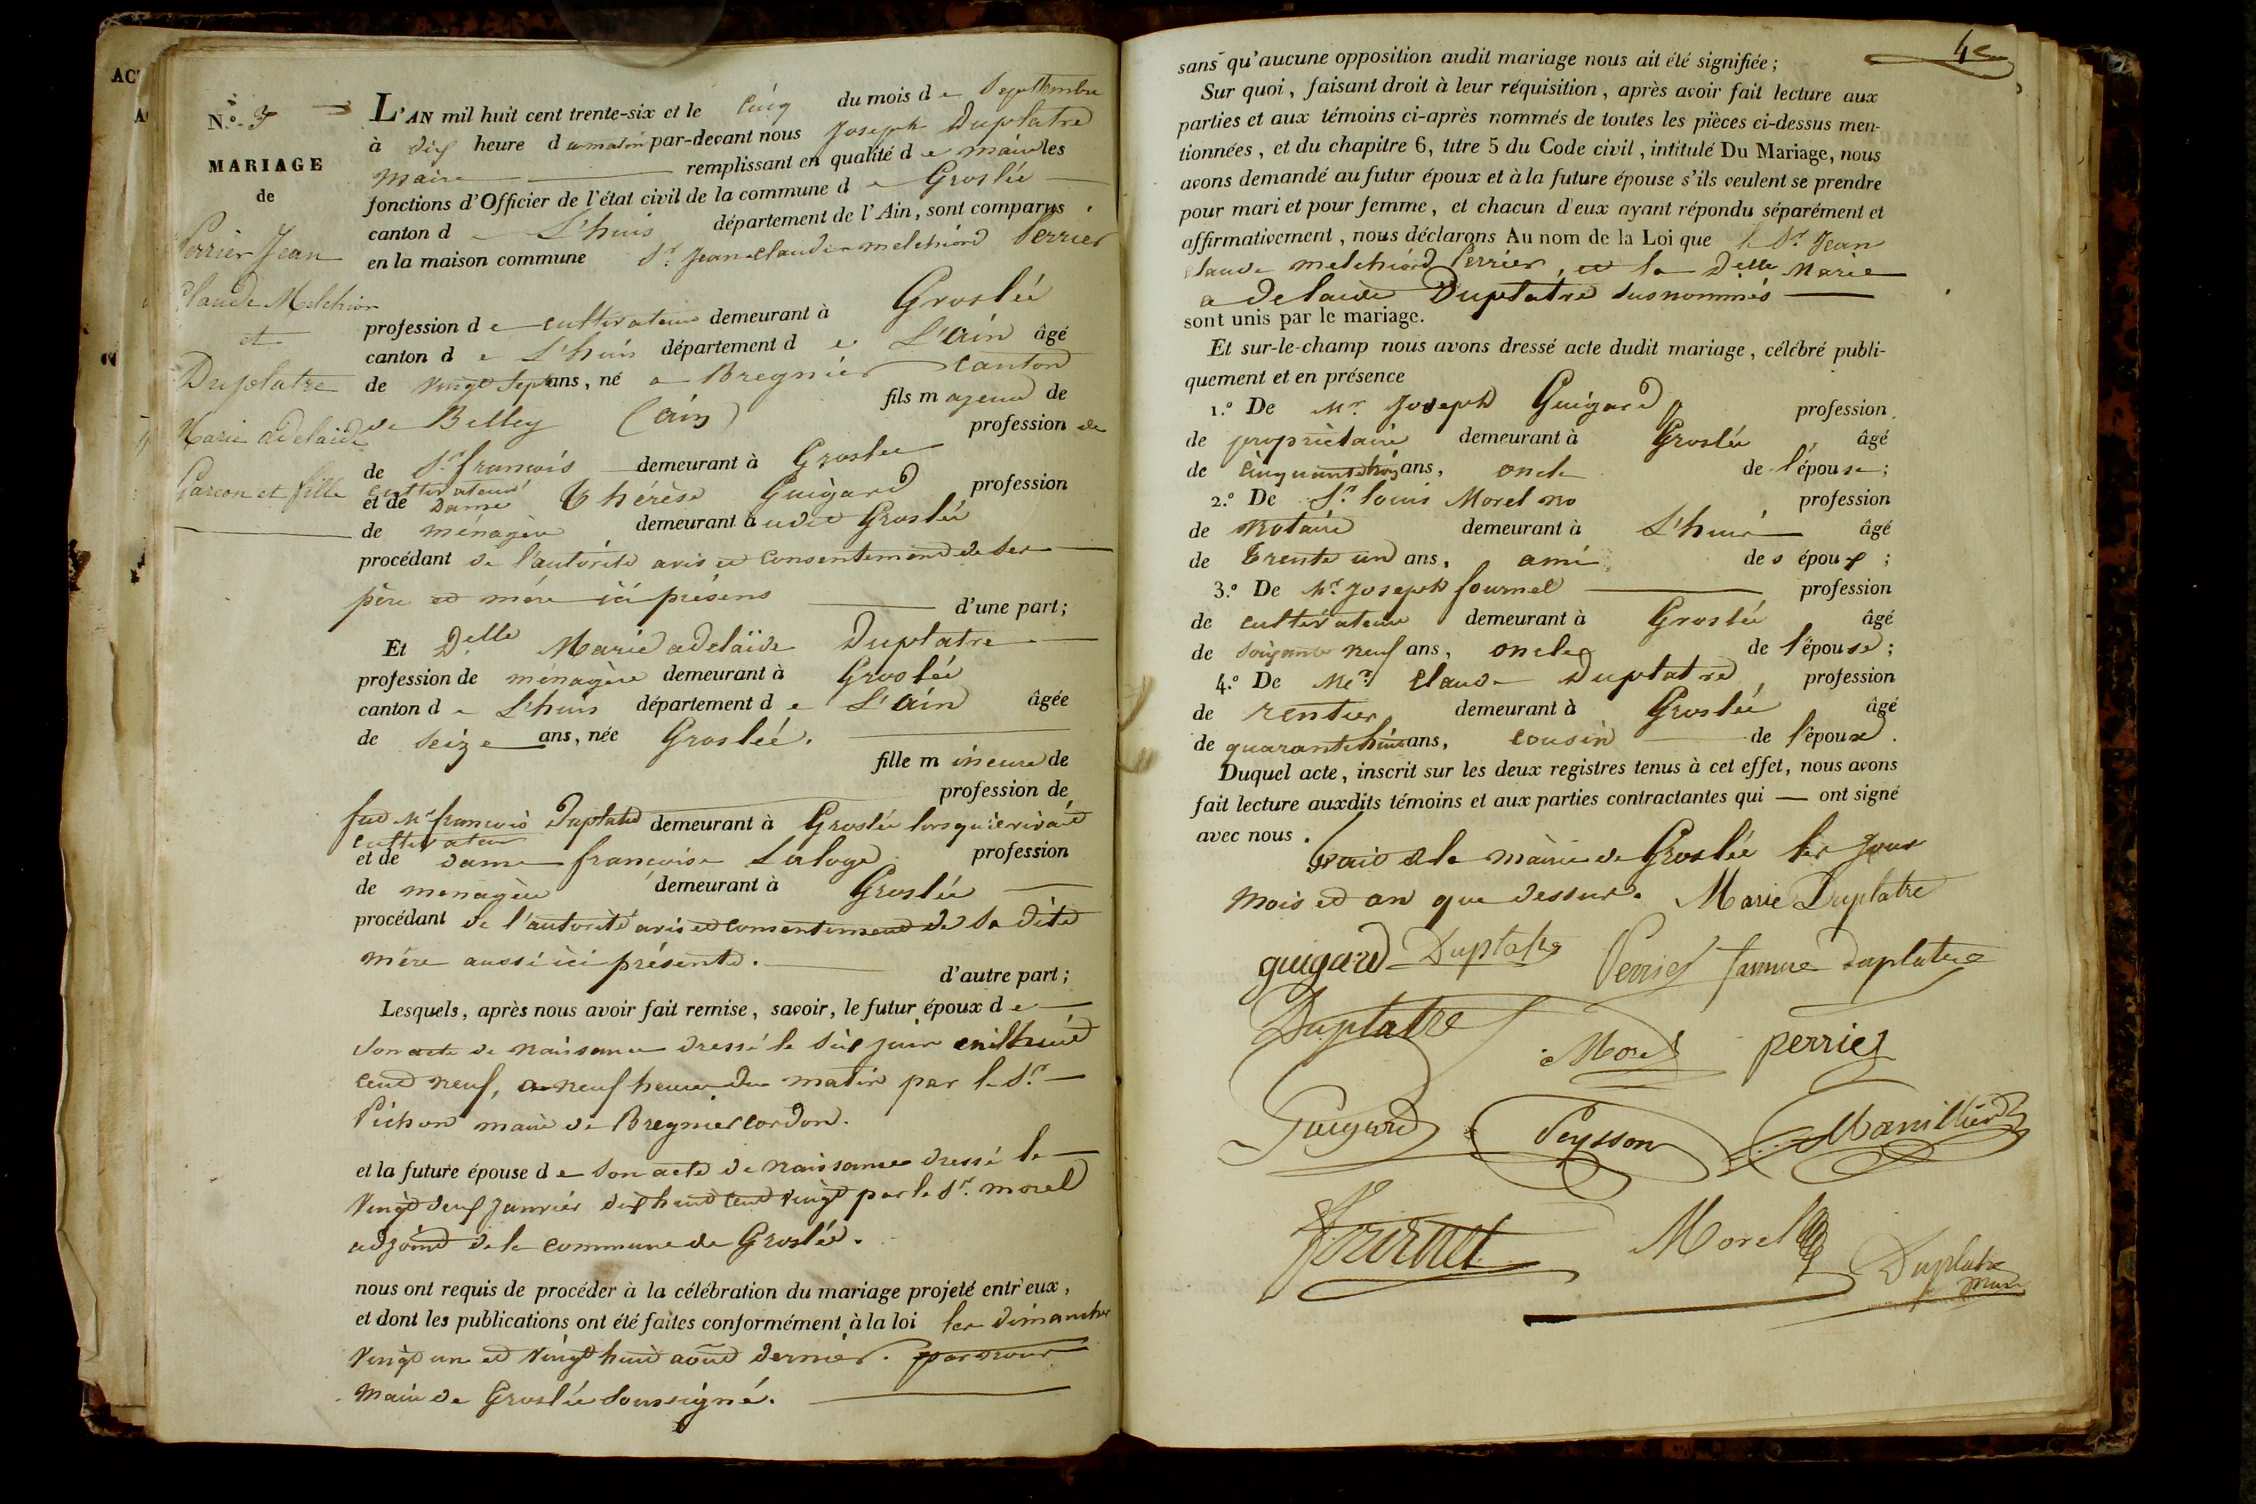 N.º 3
MARIAGE
de
Perrier Jean
Claude Melchior
et
Duplatre
Marie adelaide
Garcon et fille
L'AN mil huit cent trente-six et le cinq du mois de Septtembre
à dix heure du matin par-devant nous Joseph Duplatre
maire remplissant en qualité de maire les
fonctions d'Officier de l'état civil de la commune de Groslée
canton de L'huis département de l'Ain, sont comparus
en la maison commune Sr. Jean claude melchiord Perrier
profession de cultivateur demeurant à Groslée
canton de L'huis département de L'ain âgé
de vingt sept ans, né a Bregnier canton
de Belley (ain) fils majeur de
profession de
de Sr. francois demeurant à Groslee
cultivateur
et de Dame Thérèse Guigard profession
de ménagère demeurant à udit Groslée
procédant de l'autorité avis et consentement de ses
père et mère ici présens d'une part;
Et Delle Marie adelaïde Duplatre
profession de ménagère demeurant à Groslée
canton de L'huis département de L'ain âgée
de seize ans, née Groslée.
fille mineure de
profession de
feu Mr francois Duplatre demeurant à Groslée lorsqu'il vivait
cultivateur
et de dame francoise Laloge profession
de menagère demeurant à Groslée
procédant de l'autorité avis et consentement de sa dite
mère aussi ici présente. d'autre part;
Lesquels, après nous avoir fait remise, savoir, le futur époux de
son acte de naissance dressé le six juin mil huit
cent neuf, a neuf heures du matin par le Sr.
Pichon maire de Bregnier cordon.
et la future épouse de son acte de naissance dressé le
vingt deux janvier dix huit cent vingt par le Sr. morel
adjoint de la commune de Groslée.
nous ont requis de procéder à la célébration du mariage projeté entr'eux,
et dont les publications ont été faites conformément à la loi les dimanches
vingt un et vingt huit août dernier. par nous
maire de Groslée soussigné.
4e
sans qu'aucune opposition audit mariage nous ait été signifiée;
Sur quoi, faisant droit à leur réquisition, après avoir fait lecture aux
parties et aux témoins ci-après nommés de toutes les pièces ci-dessus men-
tionnées, et du chapitre 6, titre 5 du Code civil, intitulé Du Mariage, nous
avons demandé au futur époux et à la future épouse s'ils veulent se prendre
pour mari et pour femme, et chacun d'eux ayant répondu séparément et
affirmativement, nous déclarons Au nom de la Loi que le Sr. Jean
claude melchiord Perrier, et la Delle Marie
adelaide Duplatre susnommés
sont unis par le mariage.
Et sur-le-champ nous avons dressé acte dudit mariage, célébré publi-
quement et en présence
1.º De Mr. Joseph Guigard profession
de propriètaire demeurant à Groslée âgé
de ans, oncle de l'épouse;
2.º De Sr. louis Morel no profession
de Notaire demeurant à L'huis âgé
de trente un ans, ami des époux;
3.º De Mr. Joseph fournel profession
de cultivateur demeurant à Groslée âgé
de soixante neuf ans, oncle de l'épouse;
4.º De Me. Claude Duplatre profession
de rentier demeurant à Groslée âgé
de quarante huit ans, cousin de l'époux.
Duquel acte, inscrit sur les deux registres tenus à cet effet, nous avons
fait lecture auxdits témoins et aux parties contractantes qui ont signé
avec nous.
fait a la mairie de Groslée les jour
mois et an que dessus. Marie Duplatre
guigard Duplatre Perrier femme duplatre
Duplatre Morel perrier
Guigard Peysson
Fournel Morel Duplatre
maire